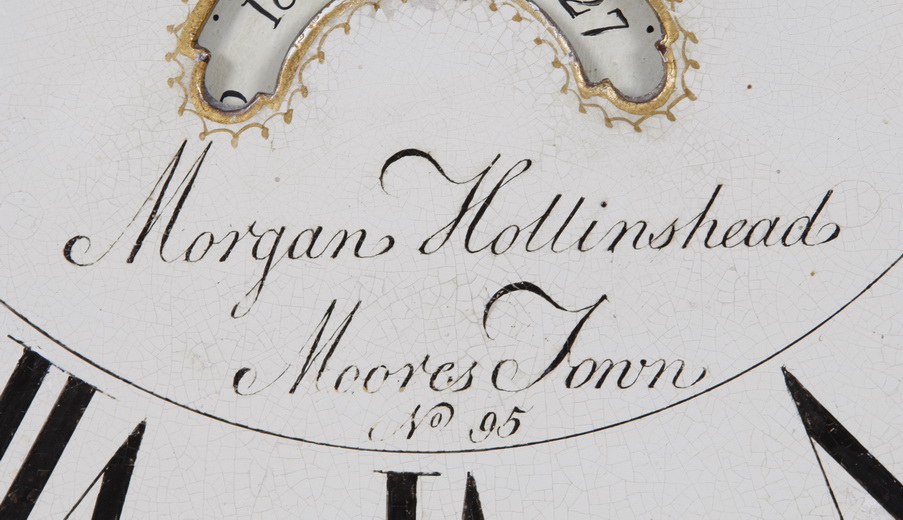 27
Morgan Hollinshead
Moores Town
No 95